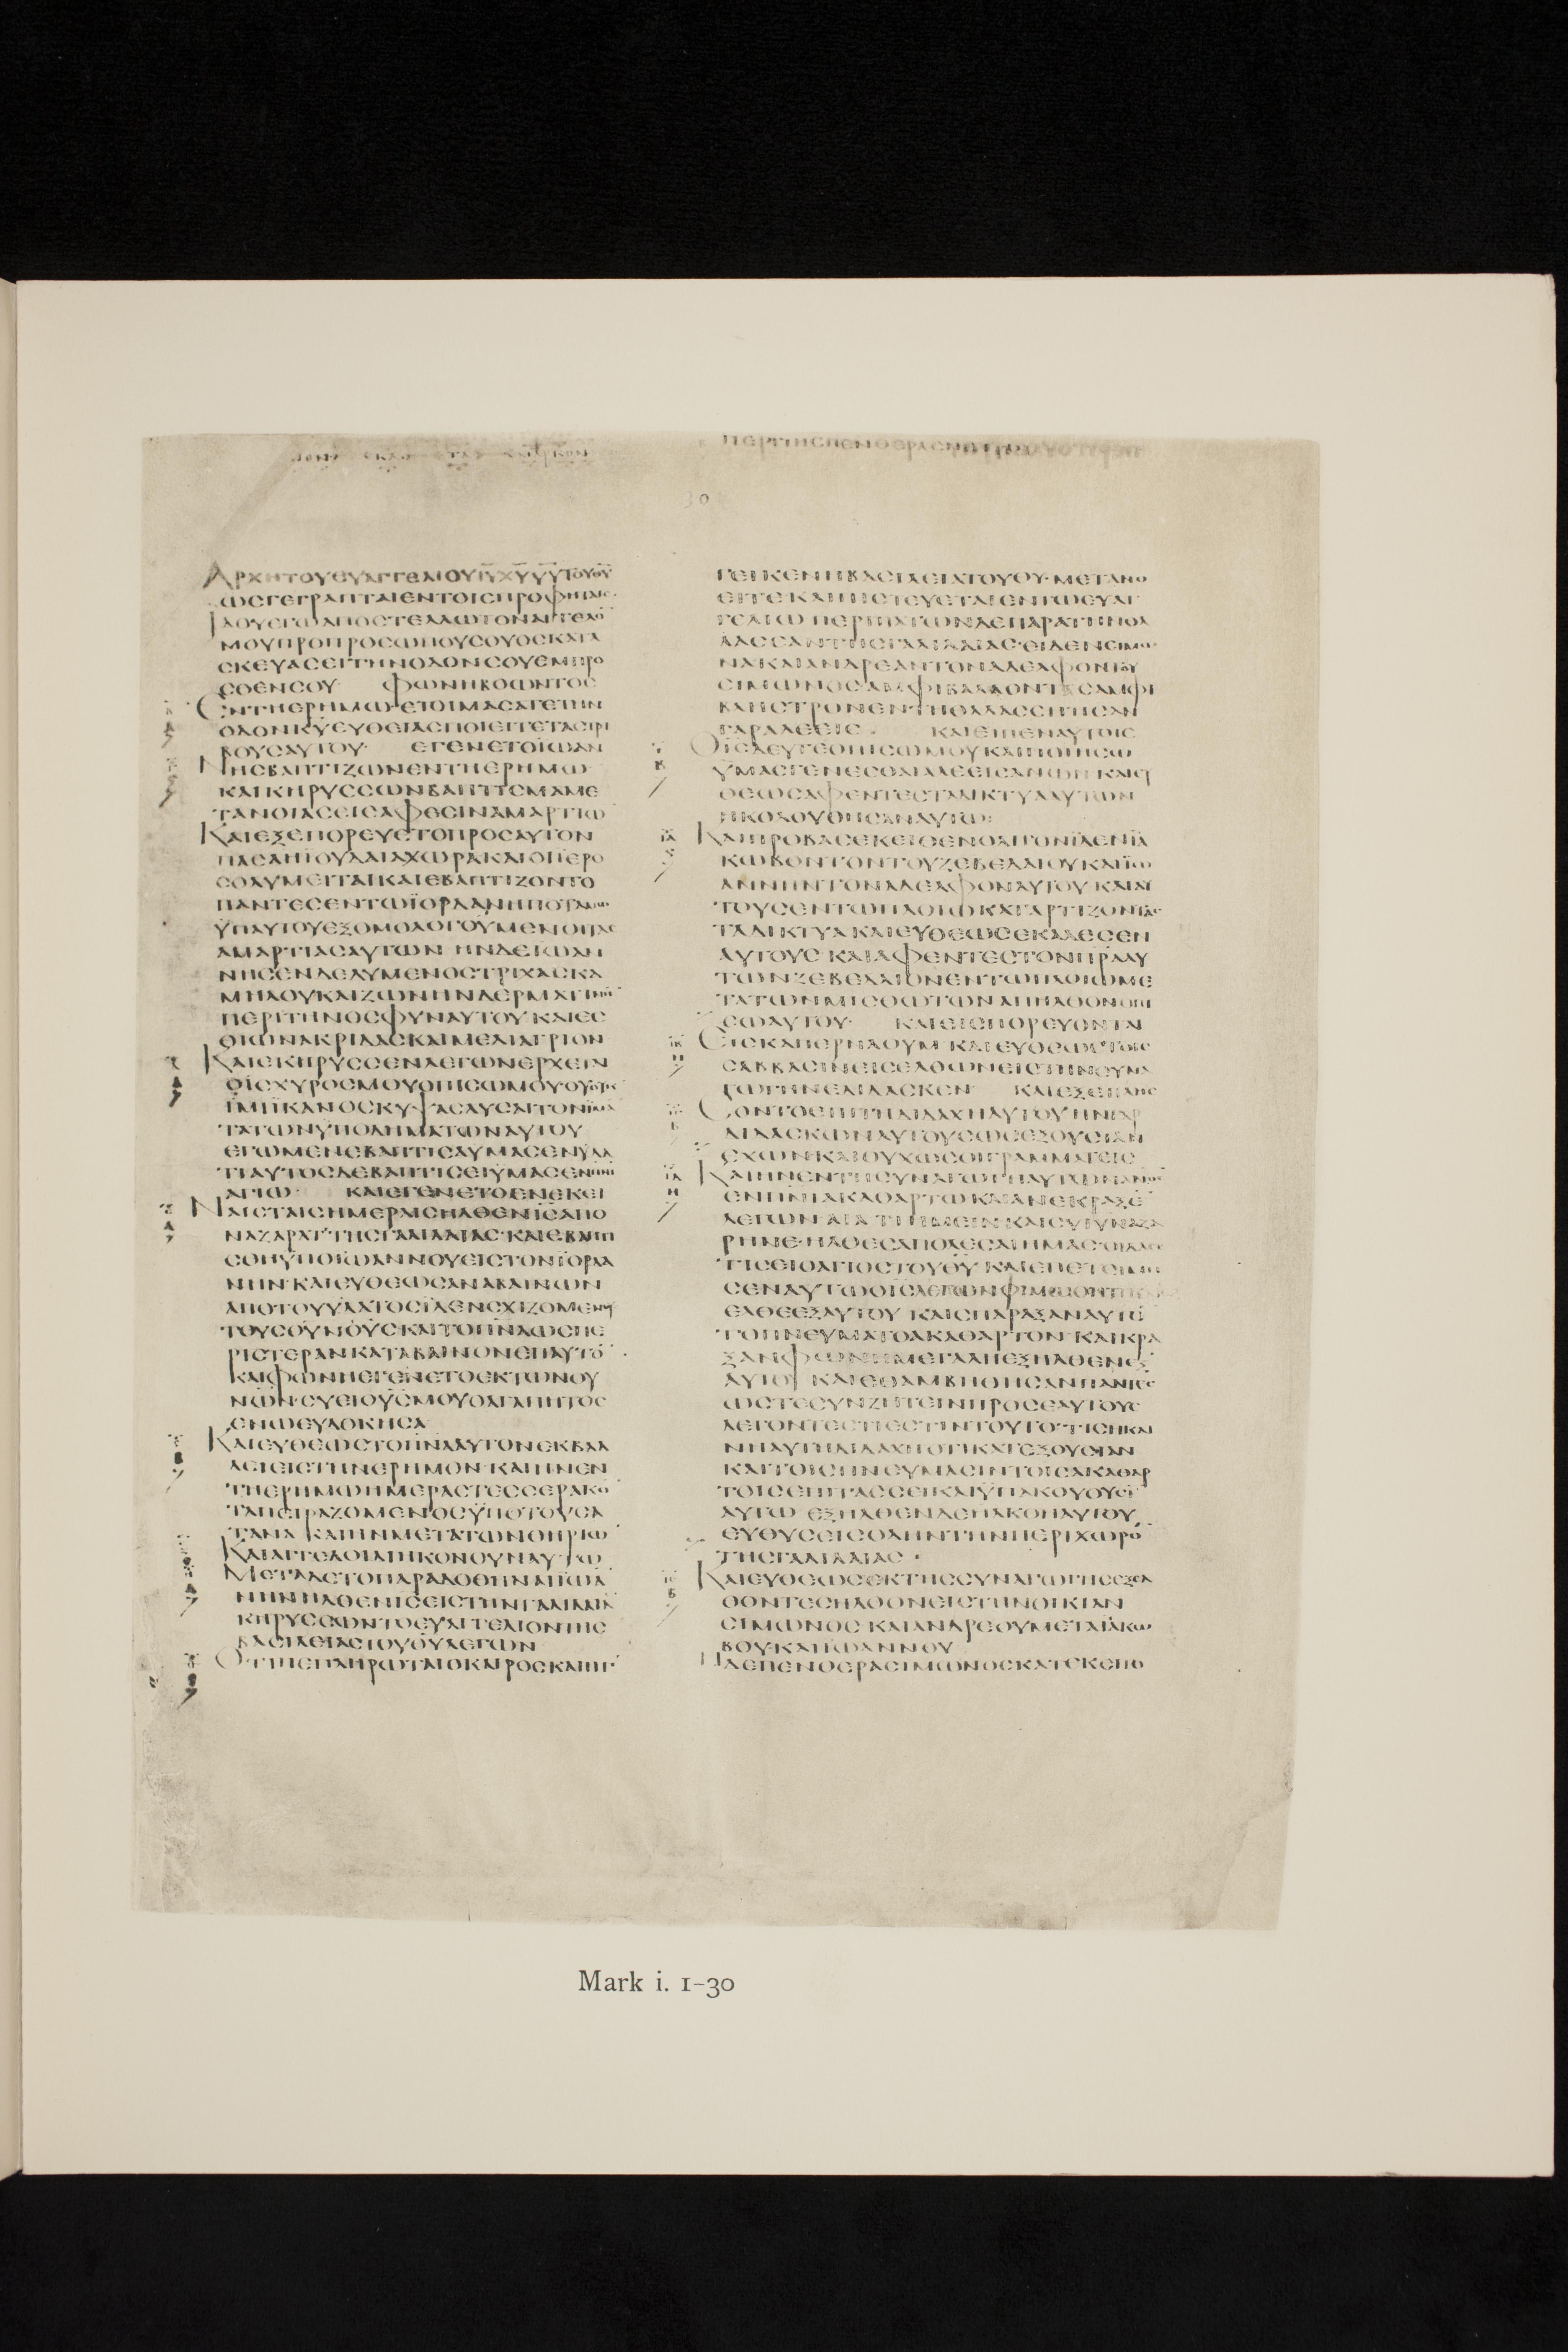 30
ΑΡΧΗΤΟΥΕΥΑΓΓΕΛΙΟΥΙΥΧΥΥΥΤΟΥΘΥ
ΩΣΓΕΓΡΑΠΤΑΙΕΝΤΟΙΣΠΡΟΦΗΤΑΙΣ
ΪΔΟΥΕΓΩΑΠΟΣΤΕΛΛΩΤΟΝΑΓΓΕΛΟ
ΜΟΥΠΡΟΠΡΟΣΩΠΟΥΣΟΥΟΣΚΑΤΑ
ΣΚΕΥΑΣΕΙΤΗΝΟΔΟΝΣΟΥΕΜΠΡΟ
ΣΘΕΝΣΟΥ ΦΩΝΗΒΟΩΝΤΟΣ
ΕΝΤΗΕΡΗΜΩΕΤΟΙΜΑΣΑΤΕΤΗΝ
ΟΔΟΝΚΥΕΥΘΕΙΑΣΠΟΙΕΙΤΕΤΑΣΤΡΙ
ΒΟΥΣΑΥΤΟΥ ΕΓΕΝΕΤΟΪΩΑΝ
ΝΗΣΒΑΠΤΙΖΩΝΕΝΤΗΕΡΗΜΩ
ΚΑΙΚΗΡΥΣΣΩΝΒΑΠΤΙΣΜΑΜΕ
ΤΑΝΟΙΑΣΕΙΣΑΦΕΣΙΝΑΜΑΡΤΙΩ
ΚΑΙΕΞΕΠΟΡΕΥΕΤΟΠΡΟΣΑΥΤΟΝ
ΠΑΣΑΗΙΟΥΔΑΙΑΧΩΡΑΚΑΙΟΙΪΕΡΟ
ΣΟΛΥΜΕΙΤΑΙΚΑΙΕΒΑΠΤΙΖΟΝΤΟ
ΠΑΝΤΕΣΕΝΤΩΪΟΡΔΑΝΗΠΟΤΑΜΩ
ΫΠΑΥΤΟΥΕΞΟΜΟΛΟΓΟΥΜΕΝΟΙΤΑΣ
ΑΜΑΡΤΙΑΣΑΥΤΩΝ ΗΝΔΕΪΩΑΝ
ΝΗΣΕΝΔΕΔΥΜΕΝΟΣΤΡΙΧΑΣΚΑ
ΜΗΛΟΥΚΑΙΖΩΝΗΝΔΕΡΜΑΤΙΝΗ
ΠΕΡΙΤΗΝΟΣΦΥΝΑΥΤΟΥΚΑΙΕΣ
ΘΙΩΝΑΚΡΙΔΑΣΚΑΙΜΕΛΙΑΓΡΙΟΝ
ΚΑΙΕΚΗΡΥΣΣΕΝΛΕΓΩΝΕΡΧΕΤΑΙ
ΟΪΣΧΥΡΟΣΜΟΥΟΠΙΣΩΜΟΥΟΥΟΥΚ
ΪΜΙΪΚΑΝΟΣΚΥΨΑΣΛΥΣΑΙΤΟΝΙΜΑ
ΤΑΤΩΝΥΠΟΔΗΜΑΤΩΝΑΥΤΟΥ
ΕΓΩΜΕΝΕΒΑΠΤΙΣΑΥΜΑΣΕΝΥΔΑ
ΤΙΑΥΤΟΣΔΕΒΑΠΤΙΣΕΙΫΜΑΣΕΝΠΝΙ
ΑΓΙΩ ΚΑΙΕΓΕΝΕΤΟΕΝΕΚΕΙ
ΝΑΙΣΤΑΙΣΗΜΕΡΑΙΣΗΛΘΕΝΙΣΑΠΟ
ΝΑΖΑΡΑΤΤΗΣΓΑΛΙΛΑΙΑΣΚΑΙΕΒΑΠΤΙ
ΣΘΗΫΠΟΪΩΑΝΝΟΥΕΙΣΤΟΝΪΟΡΔΑ
ΝΗΝΚΑΙΕΥΘΕΩΣΑΝΑΒΑΙΝΩΝ
ΑΠΟΤΟΥΥΔΑΤΟΣΪΔΕΝΣΧΙΖΟΜΕΝΟΥ
ΤΟΥΣΟΥΝΟΥΣΚΑΙΤΟΠΝΑΩΣΠΕ
ΡΙΣΤΕΡΑΝΚΑΤΑΒΑΙΝΟΝΕΠΑΥΤΟ
ΚΑΙΦΩΝΗΕΓΕΝΕΤΟΕΚΤΩΝΟΥ
ΝΩΝΣΥΕΙΟΥΣΜΟΥΟΑΓΑΠΗΤΟΣ
ΕΝΩΕΥΔΟΚΗΣΑ
ΚΑΙΕΥΘΕΩΣΤΟΠΝΑΑΥΤΟΝΕΚΒΑΛ
ΛΕΙΕΙΣΤΗΝΕΡΗΜΟΝΚΑΙΗΝΕΝ
ΤΗΕΡΗΜΩΗΜΕΡΑΣΤΕΣΣΕΡΑΚΟ
ΤΑΠΕΙΡΑΖΟΜΕΝΟΣΫΠΟΤΟΥΣΑ
ΤΑΝΑ ΚΑΙΗΝΜΕΤΑΤΩΝΘΗΡΙΩ
ΚΑΙΑΓΓΕΛΟΙΔΙΗΚΟΝΟΥΝΑΥΤΩ
ΜΕΤΑΔΕΤΟΠΑΡΑΔΟΘΗΝΑΙΪΩΑ
ΝΗΝΗΛΘΕΝΙΣΕΙΣΤΗΝΓΑΛΙΛΑΙΑ
ΚΗΡΥΣΣΩΝΤΟΕΥΑΓΓΕΛΙΟΝΤΗΣ
ΒΑΣΙΛΕΙΑΣΤΟΥΘΥΛΕΓΩΝ
ΟΤΙΠΕΠΛΗΡΩΤΑΙΟΚΑΙΡΟΣΚΑΙΗΓ
ΓΕΙΚΕΝΗΒΑΣΙΛΕΙΑΤΟΥΘΥΜΕΤΑΝΟ
ΕΙΤΕΚΑΙΠΙΣΤΕΥΕΤΑΙΕΝΤΩΕΥΑΓ
ΓΕΛΙΩΠΕΡΙΠΑΤΩΝΔΕΠΑΡΑΤΗΝΘΑ
ΛΑΣΣΑΝΤΗΣΓΑΛΙΛΑΙΑΣΕΙΔΕΝΣΙΜΩ
ΝΑΚΑΙΑΝΔΡΕΑΝΤΟΝΑΔΕΛΦΟΝΤΟΥ
ΣΙΜΩΝΟΣΑΜΦΙΒΑΛΛΟΝΤΑΣΑΜΦΙ
ΒΛΗΣΤΡΟΝΕΝΤΗΘΑΛΑΣΣΗΗΣΑΝ
ΓΑΡΑΛΕΕΙΣ ΚΑΙΕΙΠΕΝΑΥΤΟΙΣ
ΟΙΣΔΕΥΤΕΟΠΙΣΩΜΟΥΚΑΙΠΟΙΗΣΩ
ΫΜΑΣΓΕΝΕΣΘΑΙΑΛΕΕΙΣΑΝΩΝΚΑΙΕΥ
ΘΕΩΣΑΦΕΝΤΕΣΤΑΔΙΚΤΥΑΑΥΤΩΝ
ΗΚΟΛΟΥΘΗΣΑΝΑΥΤΩ
ΚΑΙΠΡΟΒΑΣΕΚΕΙΘΕΝΟΛΙΓΟΝΪΔΕΝΪΑ
ΚΩΒΟΝΤΟΝΤΟΥΖΕΒΕΔΑΙΟΥΚΑΙΪΩ
ΑΝΝΗΝΤΟΝΑΔΕΛΦΟΝΑΥΤΟΥΚΑΙΑΥ
ΤΟΥΣΕΝΤΩΠΛΟΙΩΚΑΤΑΡΤΙΖΟΝΤΑΣ
ΤΑΔΙΚΤΥΑΚΑΙΕΥΘΕΩΣΕΚΑΛΕΣΕΝ
ΑΥΤΟΥΣΚΑΙΑΦΕΝΤΕΣΤΟΝΠΡΑΑΥ
ΤΩΝΖΕΒΕΔΑΙΟΝΕΝΤΩΠΛΟΙΩΜΕ
ΤΑΤΩΝΜΙΣΘΩΤΩΝΑΠΗΛΘΟΝΟΠΙ
ΣΩΑΥΤΟΥ ΚΑΙΕΙΣΠΟΡΕΥΟΝΤΑΙ
ΕΙΣΚΑΠΕΡΝΑΟΥΜΚΑΙΕΥΘΕΩΣΤΟΙΣ
ΣΑΒΒΑΣΙΝΕΙΣΕΛΘΩΝΕΙΣΤΗΝΣΥΝΑ
ΓΩΓΗΝΕΔΙΔΑΣΚΕΝ ΚΑΙΕΞΕΠΛΗΣ
ΣΟΝΤΟΕΠΙΤΗΔΙΔΑΧΗΑΥΤΟΥΗΝΓΑΡ
ΔΙΔΑΣΚΩΝΑΥΤΟΥΣΩΣΕΞΟΥΣΙΑΝ
ΕΧΩΝΚΑΙΟΥΧΩΣΟΙΓΡΑΜΜΑΤΕΙΣ
ΚΑΙΗΝΕΝΤΗΣΥΝΑΓΩΓΗΑΥΤΩΝΑΝΟΣ
ΕΝΠΝΙΑΚΑΘΑΡΤΩΚΑΙΑΝΕΚΡΑΞΕ
ΛΕΓΩΝΕΑΤΙΗΜΕΙΝΚΑΙΣΥΙΥΝΑΖΑ
ΡΗΝΕΗΛΘΕΣΑΠΟΛΕΣΑΙΗΜΑΣΟΙΔΑΣΕ
ΤΙΣΕΙΟΑΓΙΟΣΤΟΥΘΥΚΑΙΕΠΕΤΕΙΜΗ
ΣΕΝΑΥΤΩΟΙΣΛΕΓΩΝΦΙΜΩΘΗΤΙΚΑΙ
ΕΛΘΕΕΞΑΥΤΟΥΚΑΙΣΠΑΡΑΞΑΝΑΥΤΟ
ΤΟΠΝΕΥΜΑΤΟΑΚΑΘΑΡΤΟΝΚΑΙΚΡΑ
ΞΑΝΦΩΝΗΜΕΓΑΛΗΕΞΗΛΘΕΝΕΞ
ΑΥΤΟΥΚΑΙΕΘΑΜΒΗΘΗΣΑΝΠΑΝΤΕΣ
ΩΣΤΕΣΥΝΖΗΤΕΙΝΠΡΟΣΕΑΥΤΟΥΣ
ΛΕΓΟΝΤΕΣΤΙΕΣΤΙΝΤΟΥΤΟΤΙΣΗΚΑΙ
ΝΗΑΥΤΗΔΙΔΑΧΗΟΤΙΚΑΤΕΞΟΥΣΙΑΝ
ΚΑΙΤΟΙΣΠΝΕΥΜΑΣΙΝΤΟΙΣΑΚΑΘΑΡ
ΤΟΙΣΕΠΙΤΑΣΣΕΙΚΑΙΫΠΑΚΟΥΟΥΣΙ
ΑΥΤΩ ΕΞΗΛΘΕΝΔΕΗΑΚΟΗΑΥΤΟΥ
ΕΥΘΥΣΕΙΣΟΛΗΝΤΗΝΠΕΡΙΧΩΡΟ
ΤΗΣΓΑΛΙΛΑΙΑΣ
ΚΑΙΕΥΘΕΩΣΕΚΤΗΣΣΥΝΑΓΩΓΗΣΕΞΕΛ
ΘΟΝΤΕΣΗΛΘΟΝΕΙΣΤΗΝΟΙΚΙΑΝ
ΣΙΜΩΝΟΣΚΑΙΑΝΔΡΕΟΥΜΕΤΑΪΑΚΩ
ΒΟΥΚΑΙΪΩΑΝΝΟΥ
ΗΔΕΠΕΝΘΕΡΑΣΙΜΩΝΟΣΚΑΤΕΚΕΙΤΟ
Mark i. 1–30